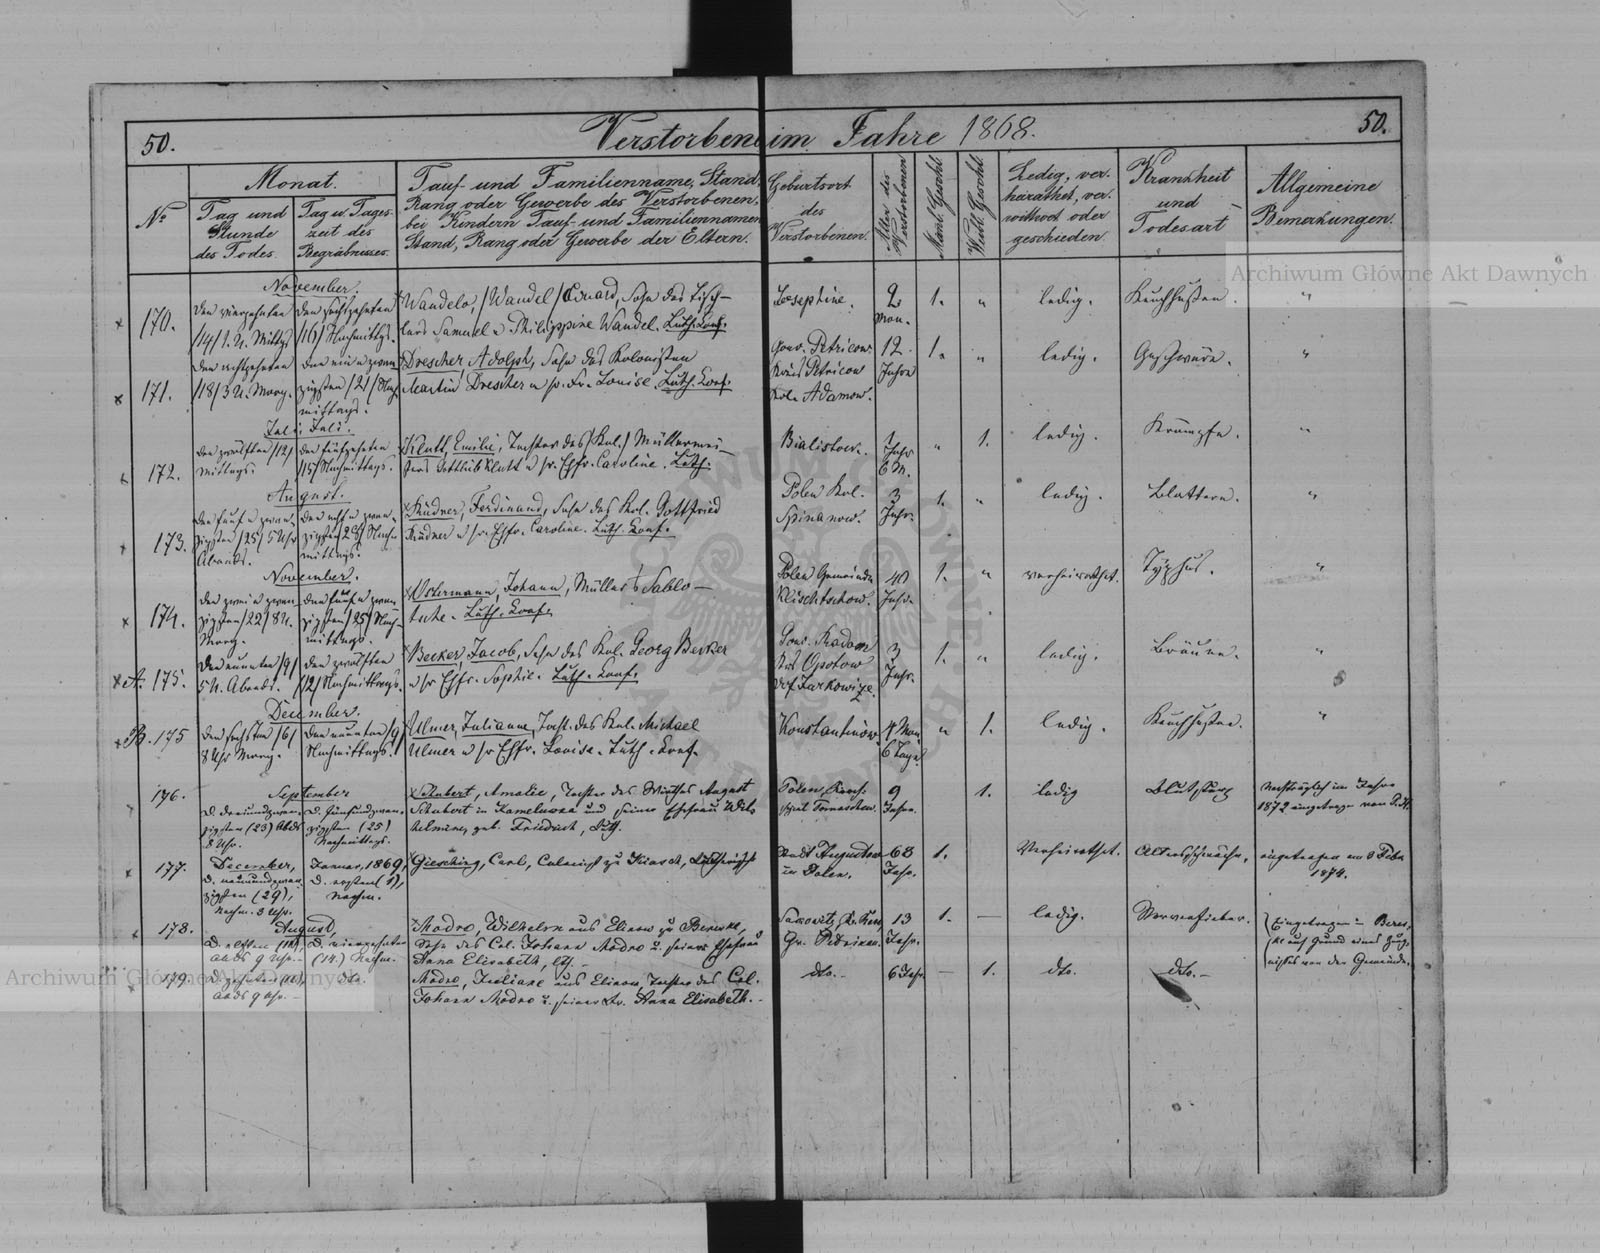 50.
Verstorbene im Jahre 1868.
50.
No
Monat.
Tag und
Stunde
des Todes.
Tag u. Tages-
zeit des
Begräbnisses.
Tauf- und Familienname, Stand,
Rang oder Gewerbe des Verstorbenen,
bei Kindern Tauf- und Familiennamen
Stand, Rang oder Gewerbe der Eltern.
Geburtsort
des
Verstorbenen.
Alter des
Verstorbenen
Männl. Geschl.
Weibl. Geschl.
Ledig, ver-
heirathet, ver-
wittwet oder
geschieden.
Krankheit
und
Todesart
Allgemeine
Bemerkungen.
November.
170.
den vierzehnten
/14/ 1. U. Mittgs
den sechszehnten
/16/ Nachmittgs.
Wandelo, /Wandel/ Eduard, Sohn des Tisch-
lers Samuel u Philippine Wandel. Luth. Conf.
Josephine.
2
Mon.
1.
"
ledig.
Keuchhusten.
"
171.
den achtzehnten
/18/ 3 U. Morg.
den ein u zwan
zigsten /21/ Nach
mittags.
Drescher, Adolph, Sohn des Kolonisten
Martin Drescher u sr. Fr. Louise. Luth. Conf.
Gouv. Petricow
Kreis Petricow
Kol. Adamow.
12.
Jahre
1.
"
ledig.
Geschwüre.
"
Juli. Juli.
172.
den zwölften /12/
Mittags.
den fünfzehnten
/15/ Nachmittags.
Klutt, Emilie, Tochter des /Kol./ Müllermei-
sters Gottlieb Klutt u sr. Ehfr. Caroline. Luth.
Bialistock.
1
Jahr
6 M.
"
1.
ledig.
Krämpfe.
"
August.
173.
den fünf u zwan-
zigsten /25/ 5 Uhr
Abends.
den acht u zwan-
zigsten 28/ Nach-
mittags.
Rüdner, Ferdinand, Sohn des Kol. Gottfried
Rüdner u sr. Ehfr. Caroline. Luth. Conf.
Polen Kol.
Spinanow.
3
Jahr.
1.
"
ledig.
Blattern.
"
November.
174.
den zwei u zwan
zigsten /22/ 8 U.
Morg.
den fünf u zwan
zigsten /25/ Nach-
mittags.
Ostermann, Johann, Müller
Luth. Conf.
Polen Gemeinde
Klischtschow.
40
Jahr.
1.
"
verheirathet.
Typhus.
"
A. 175.
den neunten /9/
5 U. Abends.
den zwölften
/12/ Nachmittags.
Becker, Jacob, Sohn des Kol. Georg Becker
u sr Ehfr. Sophie. Luth. Conf.
Gouv. Radom
Krs Opotow
3
Jahr.
1.
"
ledig.
Bräune.
"
December.
B. 175
den sechsten /6/
8 Uhr Morg.
den neunten /9/
Nachmittags.
Ulmer, Julianna, Tocht. des Kol. Michael
Ulmer u sr Ehfr. Louise. Luth. Conf.
Konstantinow.
4 Mon
6 Tage
"
1.
ledig.
Keuchhusten.
"
176.
September
d. dreiundzwan-
zigsten (23) Abds
8 Uhr.
d. fünfundzwan-
zigsten (25)
Nachmittags.
Schubert, Amalie, Tochter des Wirthes August
Schubert in und seiner Ehefrau Wil-
helmine, geb. Friedrich, luth.
Polen,
9
Jahre.
1.
ledig
Nachträglich im Jahre
1872 eingetragen von
177.
December,
d. neunundzwan-
zigsten (29),
Nachm. 3 Uhr.
Januar, 1869,
d. ersten (1),
Nachm.
Giesching, Carl, Colonist zu
Stadt Augustow
in Polen.
68
Jahr.
1.
Verheirathet.
Altersschwäche.
eingetragen am 3 Febr
1874.
178.
August,
d. elften (11)
Abds 9 Uhr.
d. vierzehnten
(14.) Nachm.
Modro, Wilhelm aus Elinow zu
Sohn des Col. Johann Modro u. seiner Ehefrau
Anna Elisabeth, ev.
13
Jahr.
1.
—
ledig.
Nervenfieber.
Eingetragen in
auf Grund eines Zeug-
nisses von der Gemeinde.
179.
Abds 9 Uhr.
dto
Modro, Juliane aus Elinow, Tochter des Col.
Johann Modro u. seiner Fr. Anna Elisabeth.
dto.
6 Jahr.
—
1.
dto.
dto.
Archiwum Główne Akt Dawnych
Archiwum Główne Akt Dawnych